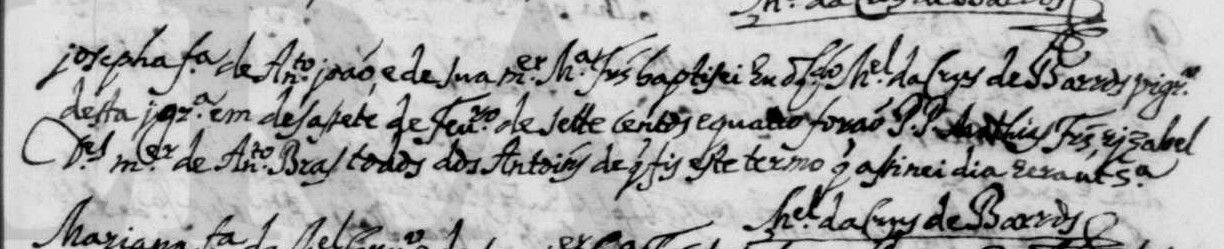 M.el da Crus de Barros
josepha f.a de An.to joaõ, e de sua m.er M.a Frz baptisei Eu o P.e M.el da Crus de Barros vigr.o
desta jgr.a em desasete de Feu.ro de sette centos e quatro foraõ P.P. Mathias Frz, e jzabel
m.er de An.to Bras todos dos Antoins de q̃ fis este termo q̃ asinei dia era ut s.a
M.el da Crus de Barros
Mariana f.a de